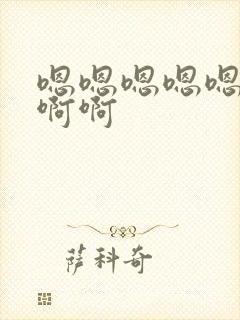 嗯嗯嗯嗯嗯
啊啊
萨科奇